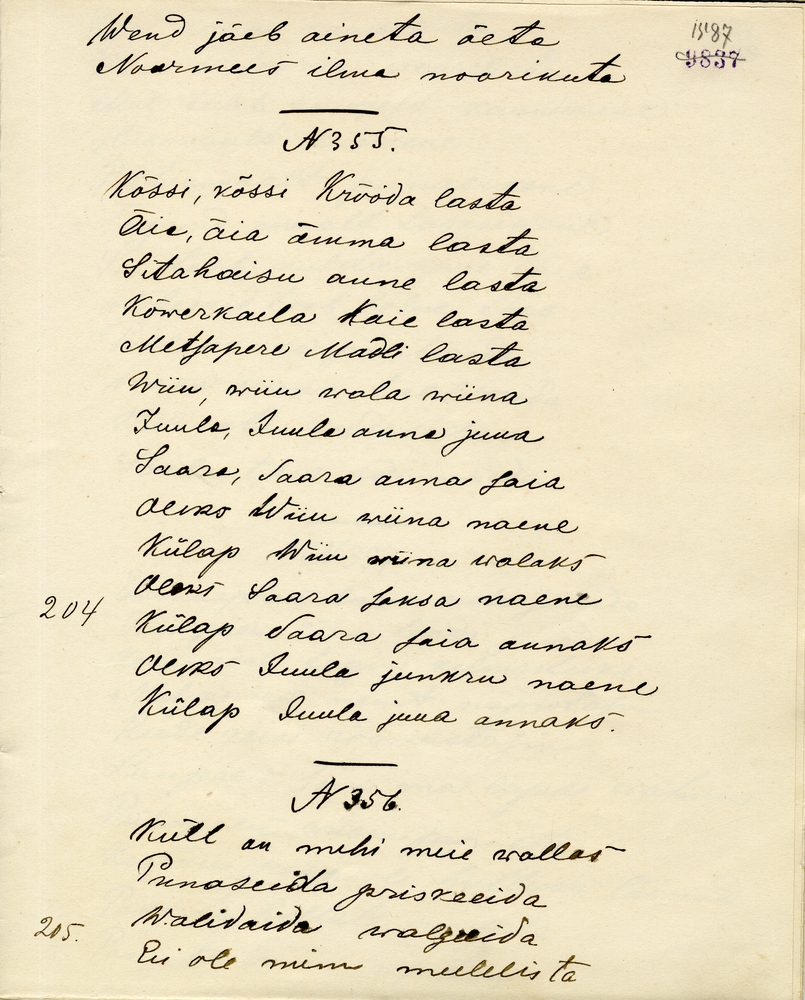 Wend jäeb aineta õeta
Noormees ilma noorikuta
1587
9837
N 355.
Kõssi, kõssi Krõõda lasta
Äia, äia ämma lasta
Sitahaisu anne lasta
Kõwerkaela Kaie lasta
Metsapere Madli lasta
Wiiu, wiiu wala wiina
Juula, Juula anna juua
Saara, Saara anna saia
Oleks Wiiu wiina naene
Külap Wiiu wiina walaks
204
Oleks Saara saksa naene
Külap Saara saia annaks
Oleks Juula junkru naene
Külap Juula juua annaks.
N 356.
Küll on mehi meie wallas
Punaseida priskeeida
205.
Walidaida walgeida
Ei ole minu meelelista